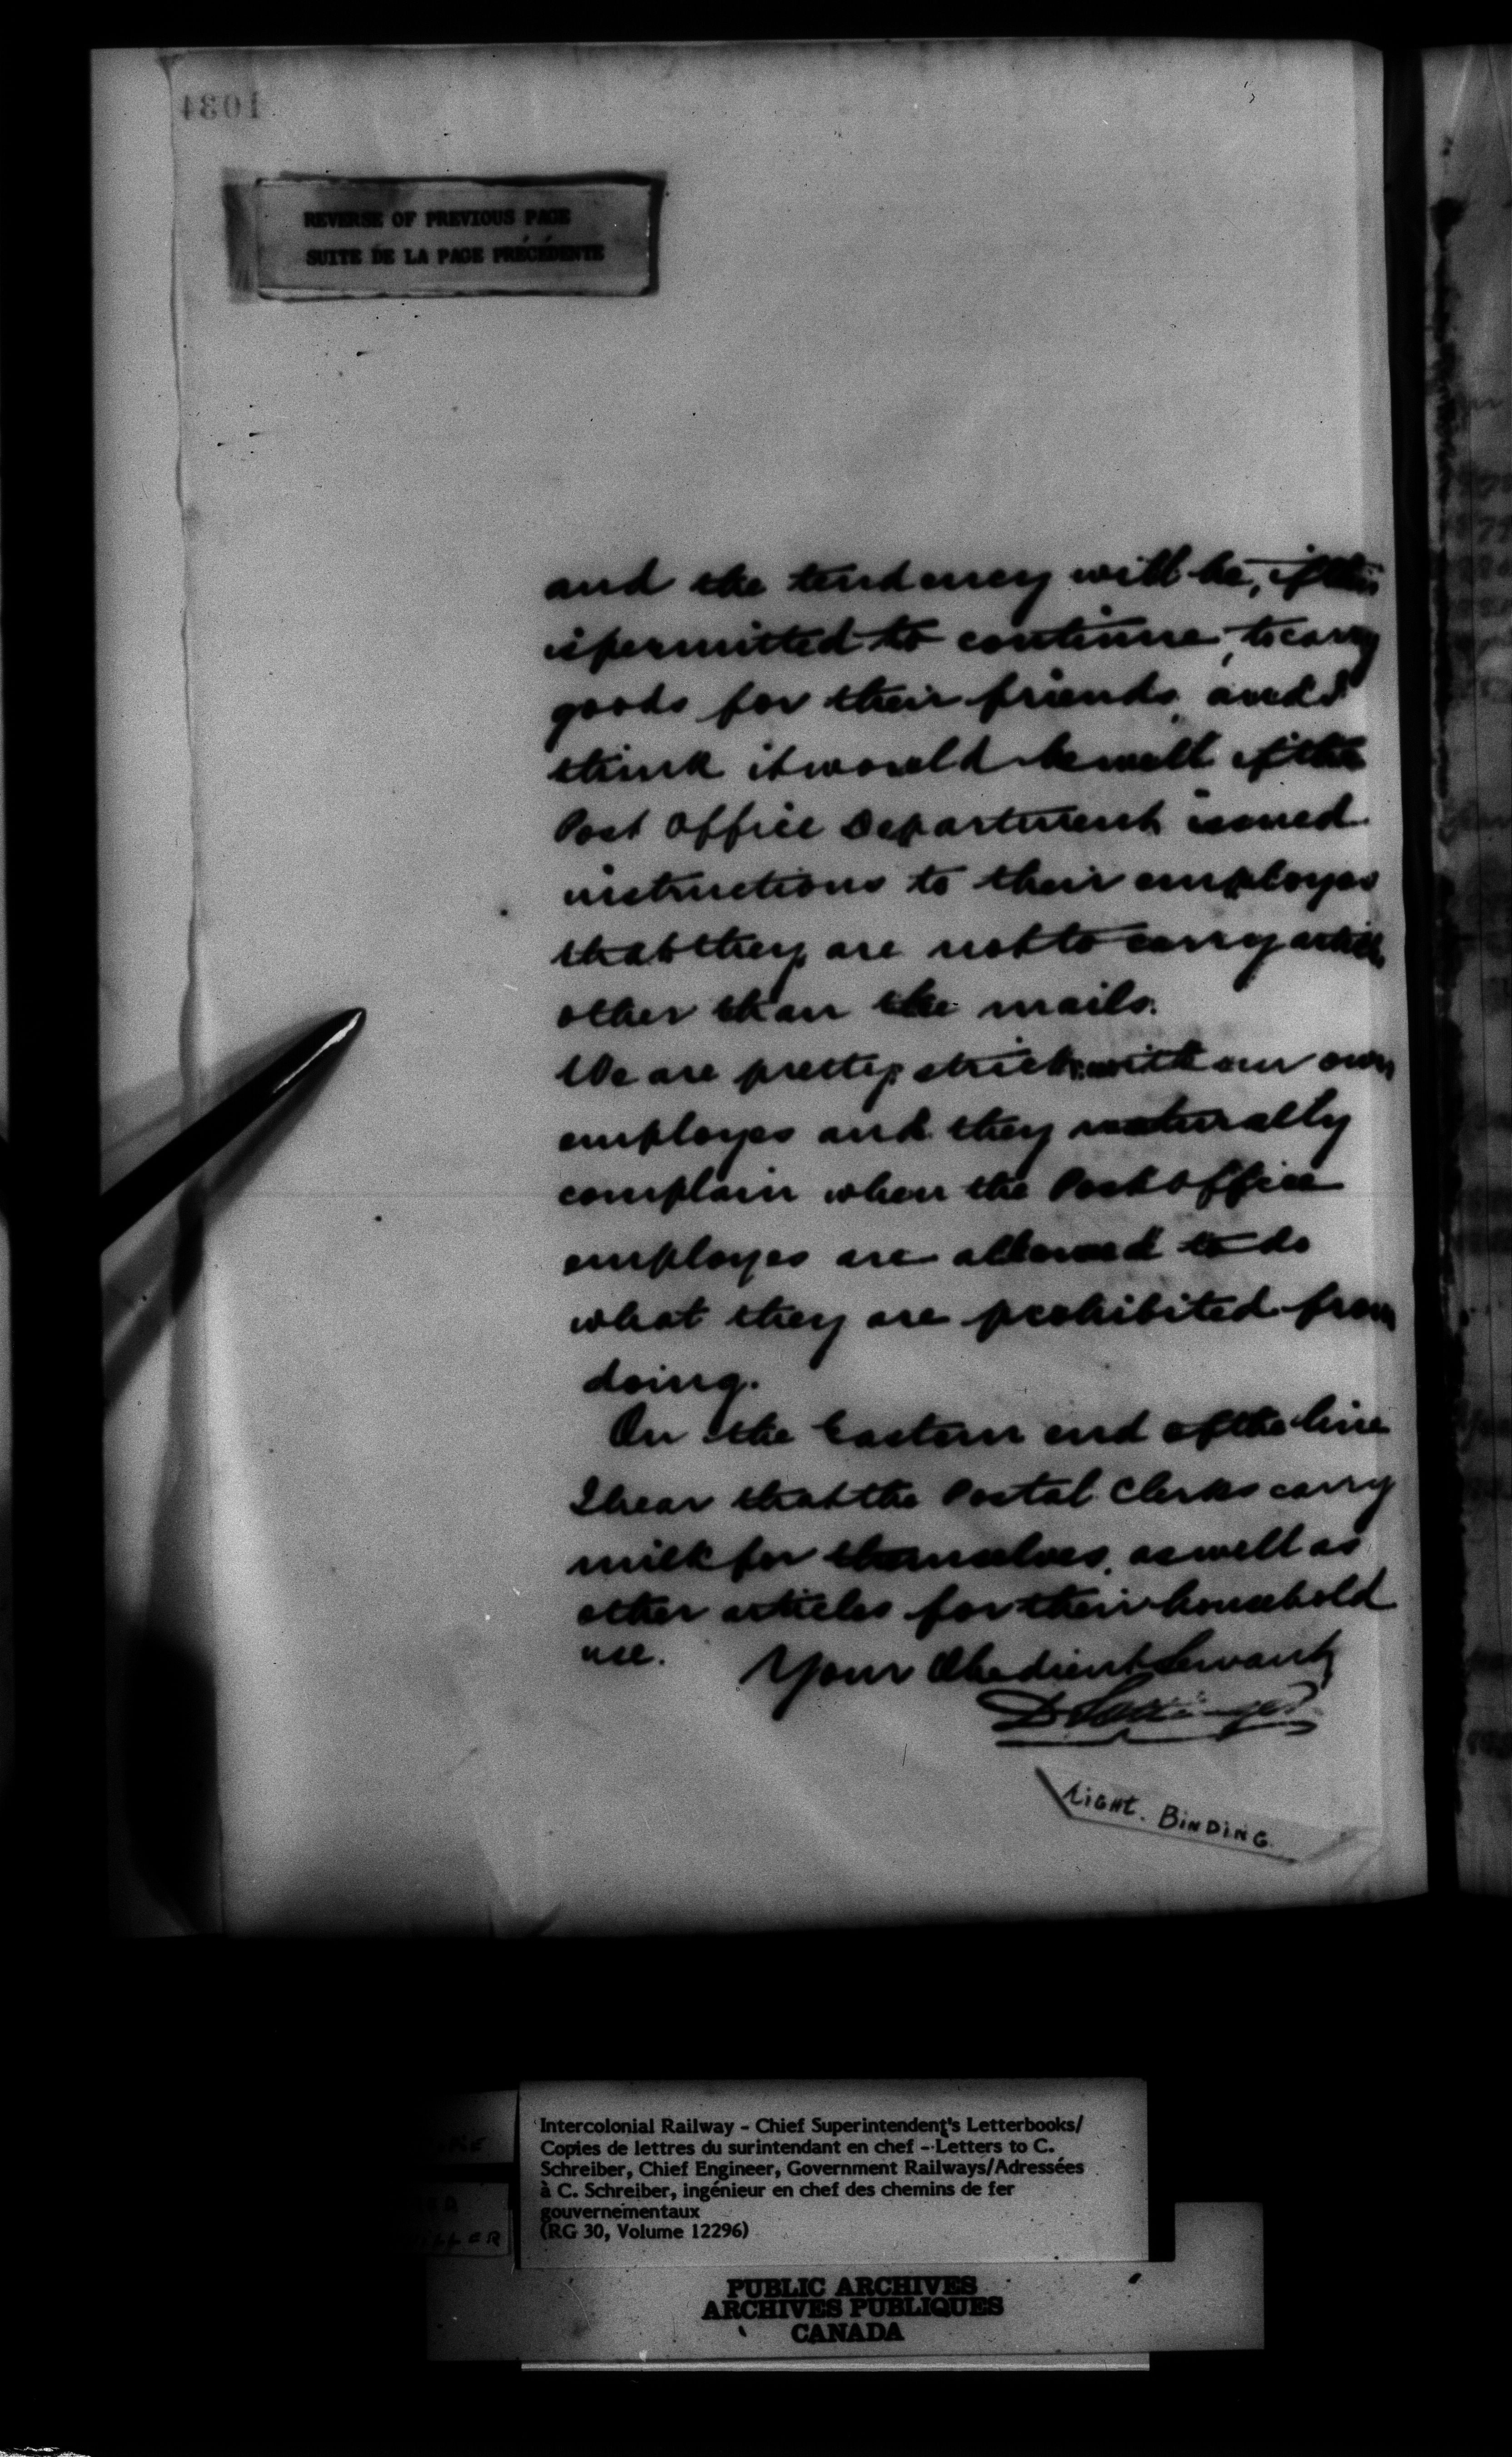 1034
REVERSE OF PREVIOUS PAGE
SUITE DE LA PAGE PRÉCÉDENTE
and the tendency will be, if this
is permitted to continue, to carry
goods for their friends, and I
think it would be well if the
Post Office Department issued
instructions to their employes
that they are not to carry articles
other than the mails.
We are pretty strict with our own
employes and they naturally
complain when the Post Office
employes are allowed to do
what they are prohibited from
doing.
On the Eastern end of the line
I hear that the Postal Clerks carry
milk for themselves, as well as
other articles for their household
use. Your Obedient Servant
D Pottinger
TIGHT. BINDING.
Intercolonial Railway - Chief Superintendent's Letterbooks/
Copies de lettres du surintendant en chef - Letters to C.
Schreiber, Chief Engineer, Government Railways/Adressées
à C. Schreiber, ingénieur en chef des chemins de fer
gouvernementaux
(RG 30, Volume 12296)
PUBLIC ARCHIVES
ARCHIVES PUBLIQUES
CANADA